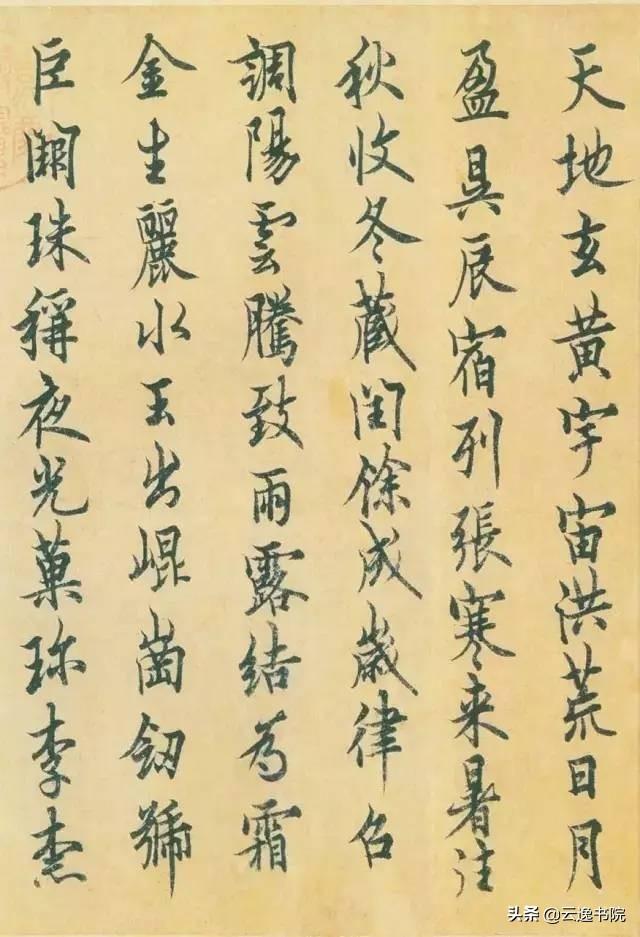 天地玄黃宇宙洪荒日月
盈昃辰宿列張寒来暑往
秋收冬藏閏餘成歲律召
調陽雲騰致雨露結為霜
金生麗水玉出崐崗劔號
巨闕珠稱夜光菓珎李柰
头条 @云逸书院